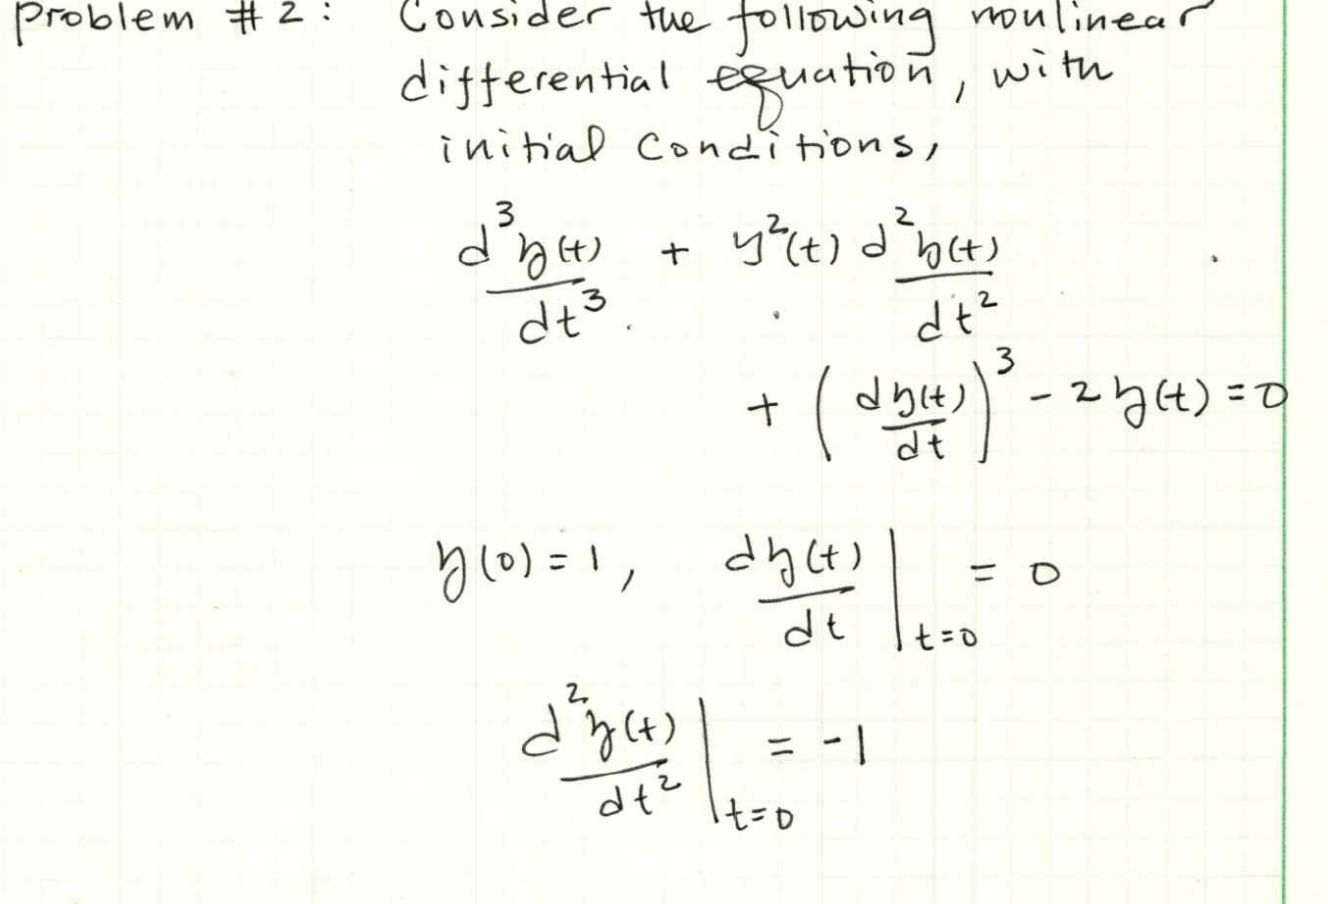 Problem # 2: Consider the following nonlinear
differential equation, with
initial conditions,
d³y(t)/dt³ + y²(t) d²y(t)/dt²
+ (dy(t)/dt)³ - 2y(t) = 0
y(0) = 1, dy(t)/dt |t=0 = 0
d²y(t)/dt² |t=0 = -1